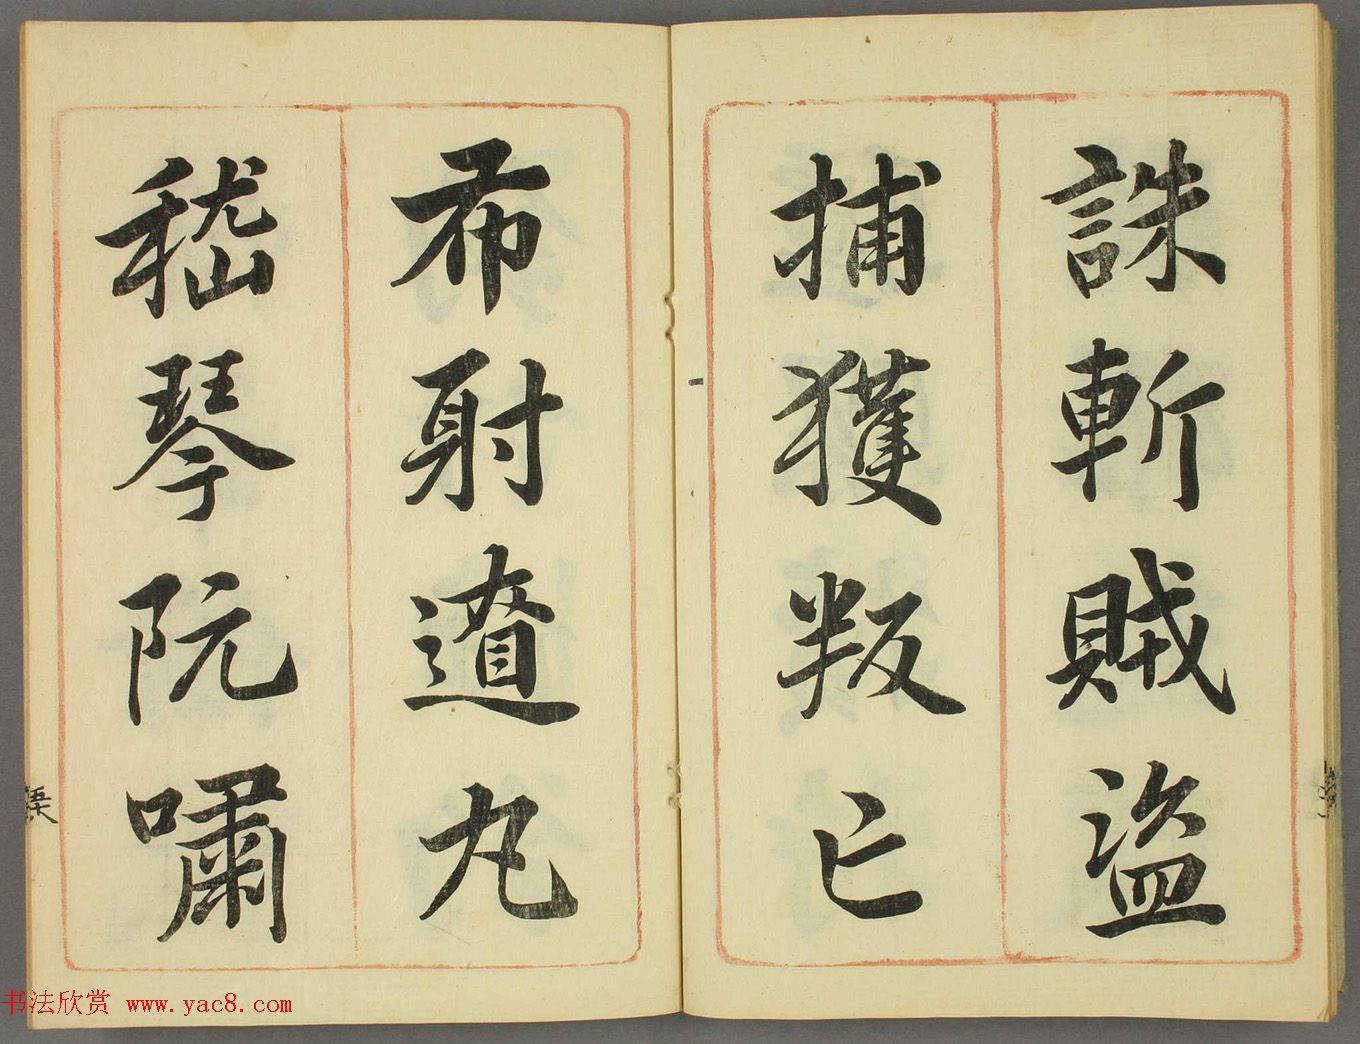 誅斬賊盗
捕獲叛亡
布射遼丸
嵇琴阮嘯
书法欣赏 www.yac8.com